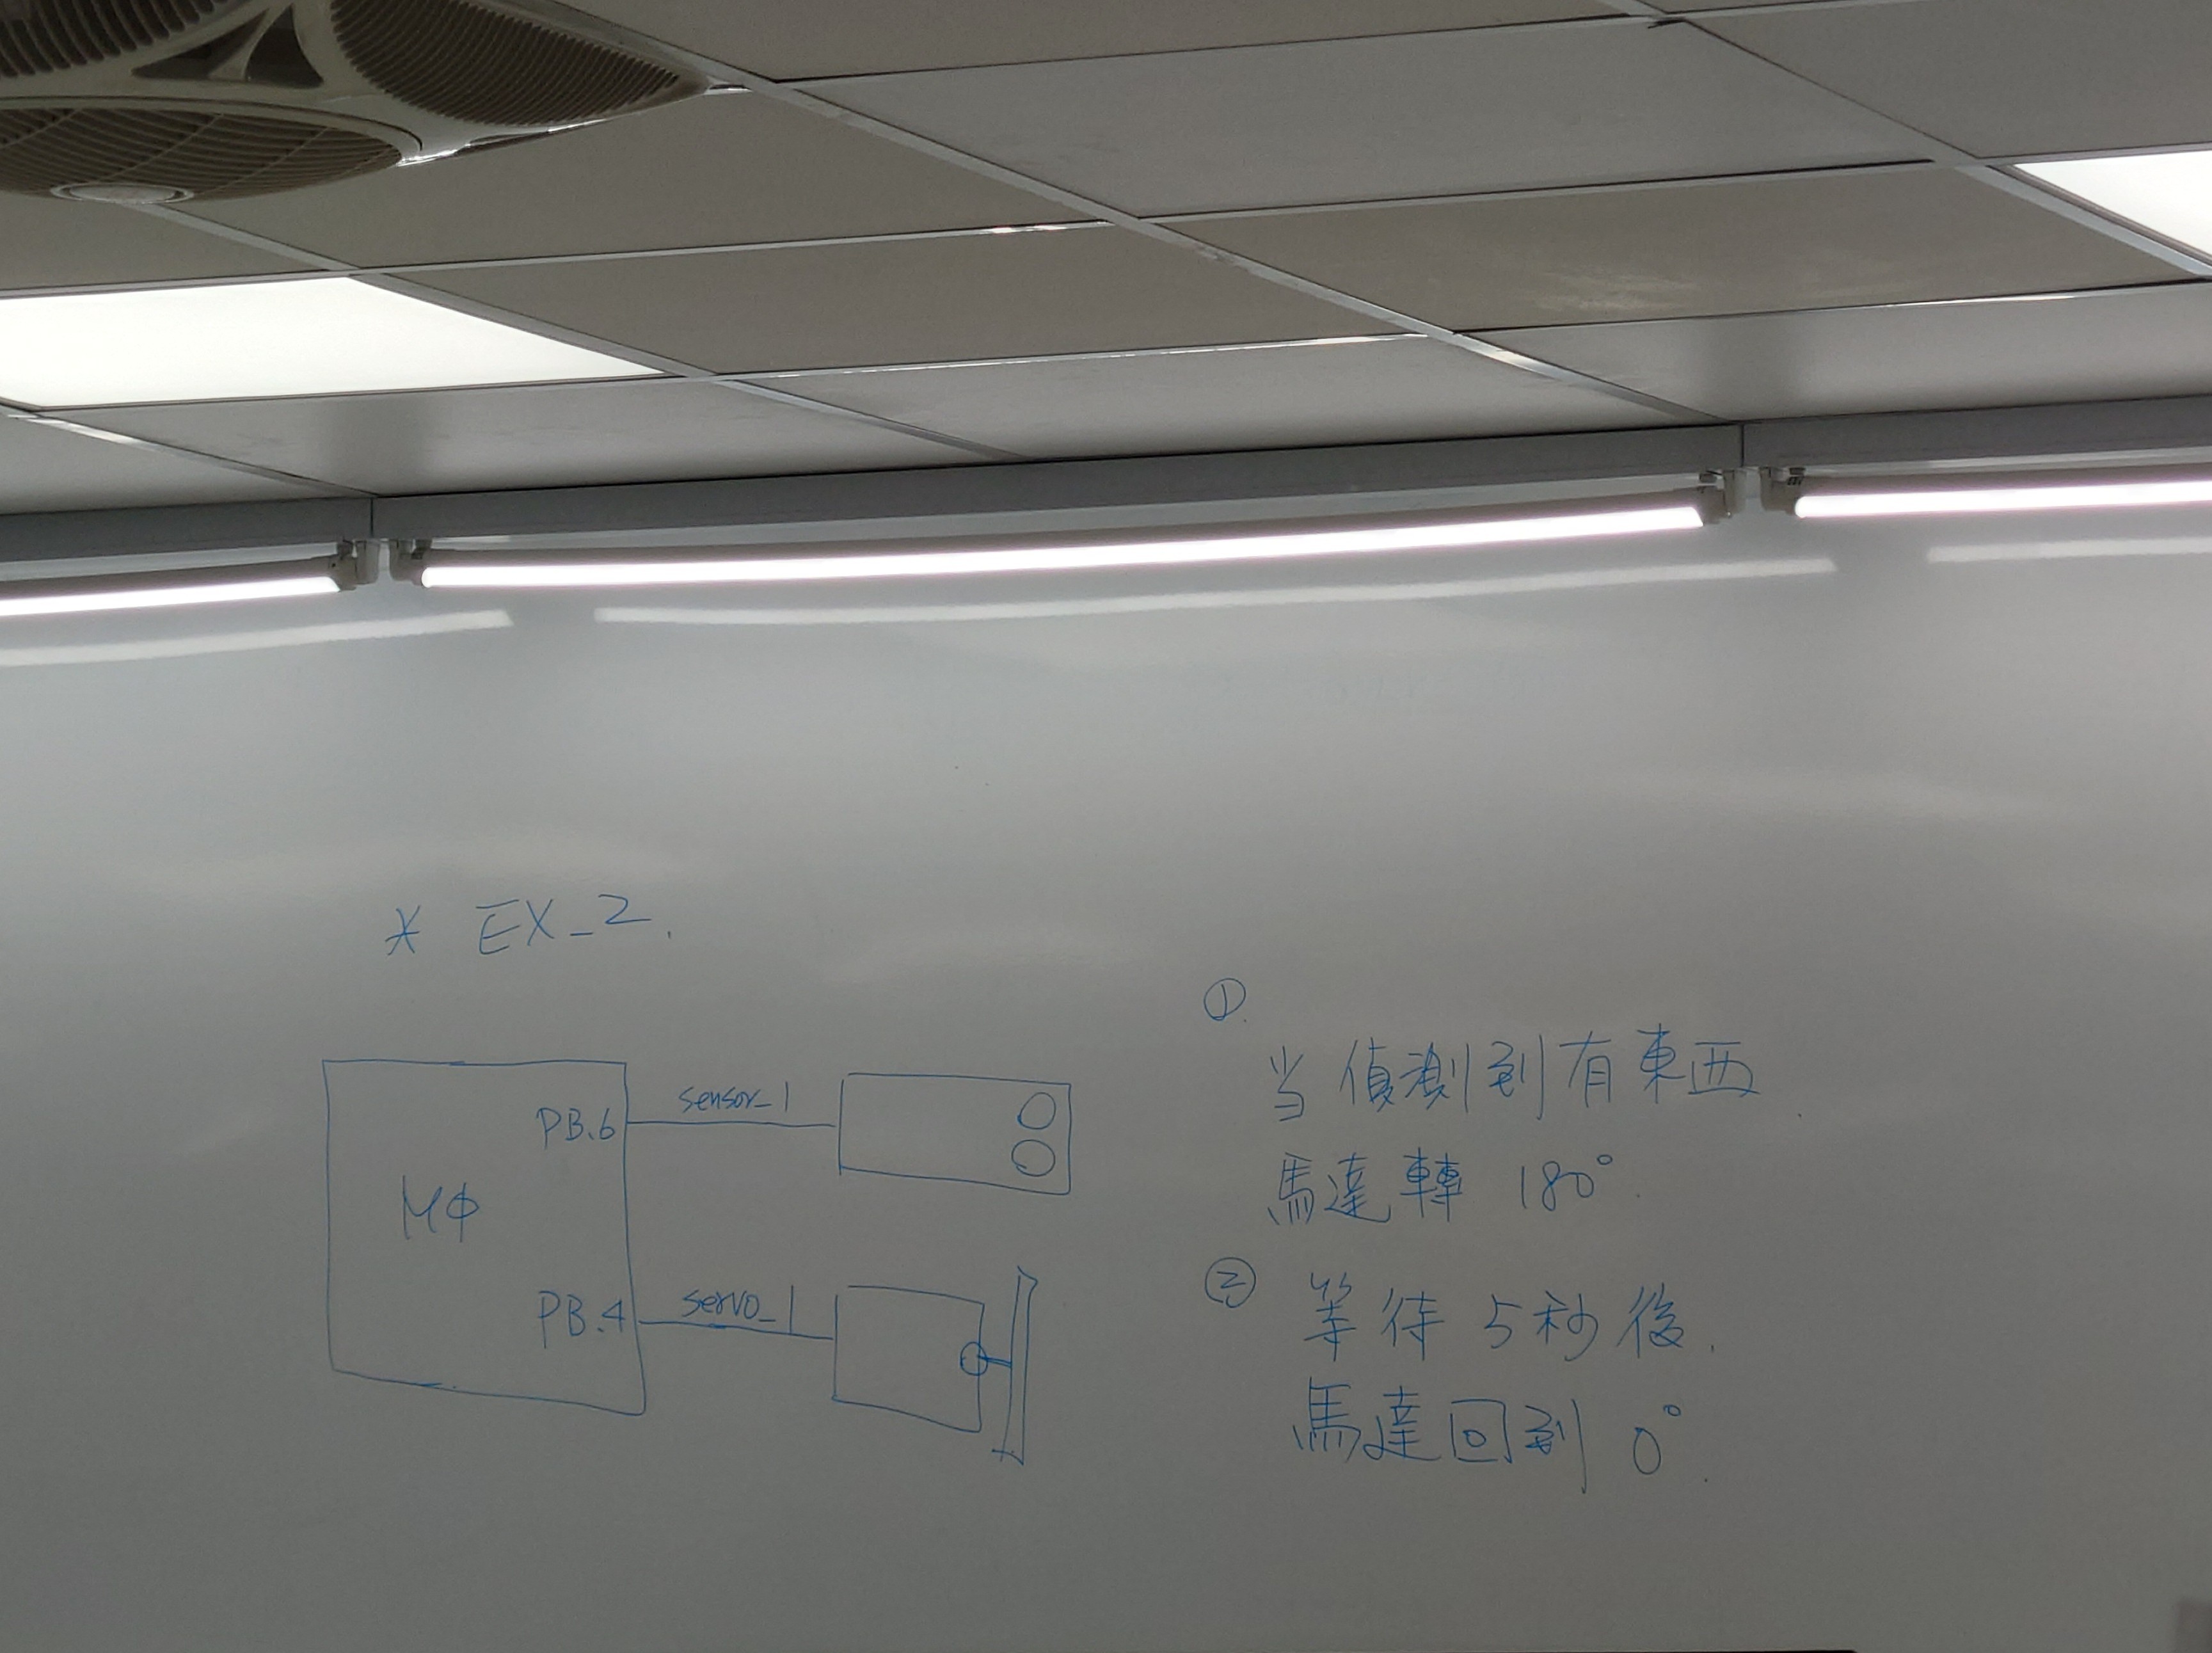 * EX_2.
PB.6
sensor_1
MΦ
PB.4
servo_1
①
当偵測到有東西.
馬達轉 180°.
② 等待 5秒後.
馬達回到 0°.